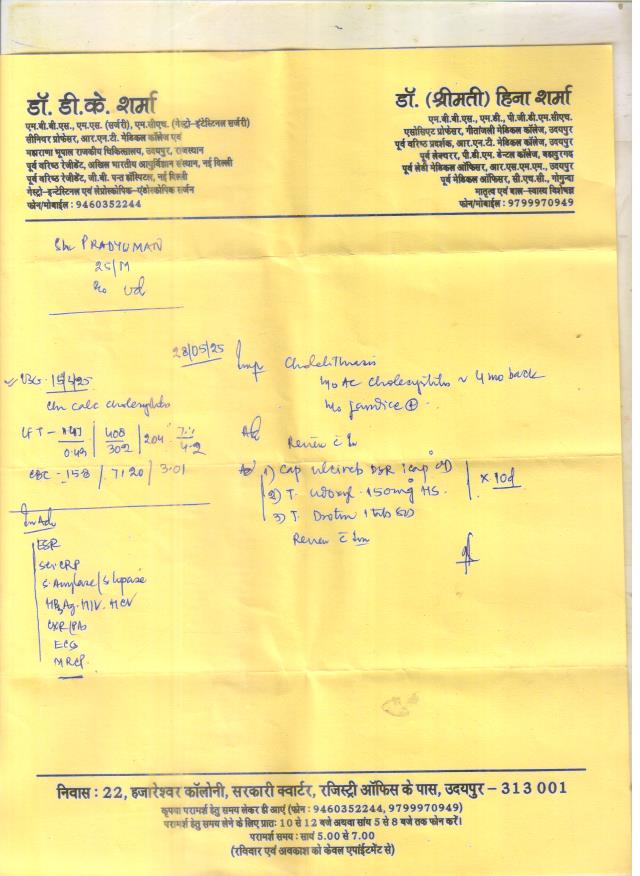 डॉ. डी.के. शर्मा
एम.बी.बी.एस., एम.एस. (सर्जरी), एम.सीएच. (गेस्ट्रो-इंटेस्टिनल सर्जरी)
सीनियर प्रोफेसर, आर.एन.टी. मेडिकल कॉलेज एवं
महाराणा भूपाल राजकीय चिकित्सालय, उदयपुर, राजस्थान
पूर्व वरिष्ठ रेजीडेंट, अखिल भारतीय आयुर्विज्ञान संस्थान, नई दिल्ली
पूर्व वरिष्ठ रेजीडेंट, जी.बी. पन्त हॉस्पिटल, नई दिल्ली
गेस्ट्रो-इन्टेस्टिनल एवं लेप्रोस्कोपिक-एंडोस्कोपिक सर्जन
फोन/मोबाईल : 9460352244
डॉ. (श्रीमती) हिना शर्मा
एम.बी.बी.एस., एम.डी., पी.जी.डी.एम.सीएच.
एसोसिएट प्रोफेसर, गीतांजली मेडिकल कॉलेज, उदयपुर
पूर्व वरिष्ठ प्रदर्शक, आर.एन.टी. मेडिकल कॉलेज, उदयपुर
पूर्व लेक्चरर, पी.डी.एम. डेन्टल कॉलेज, बहादुरगढ़
पूर्व लेडी मेडिकल ऑफिसर, आर.एस.एम.एम., उदयपुर
पूर्व मेडिकल ऑफिसर, सी.एच.सी., गोगुन्दा
मातृत्व एवं बाल-स्वास्थ्य विशेषज्ञ
फोन/मोबाईल : 9799970949
PRADYUMAN
25/M
28/05/25 Imp Cholelithiasis
H/o AC Cholecystitis ~ 4 mo back
H/o Jaundice ⊕
USG - 15/4/25
Chr calc cholecystitis
LFT - 408/302 | 204
CBC - 15.8 / 7120 / 3.01
Review c
1) Cap DSR 1 cap OD
2) T. Udoxyl 150mg HS
3) T. Drotin 1 tab SD
x 10d
Review c
Adv
ESR
CRP
S. Amylase / S lipase
HBsAg. HIV. HCV
CXR/PA
ECG
MRCP
निवास : 22, हजारेश्वर कॉलोनी, सरकारी क्वार्टर, रजिस्ट्री ऑफिस के पास, उदयपुर - 313 001
कृपया परामर्श हेतु समय लेकर ही आएं (फोन : 9460352244, 9799970949)
परामर्श हेतु समय लेने के लिए प्रातः 10 से 12 बजे अथवा सांय 5 से 8 बजे तक फोन करें।
परामर्श समय : सायं 5.00 से 7.00
(रविवार एवं अवकाश को केवल एपॉईंटमेंट से)